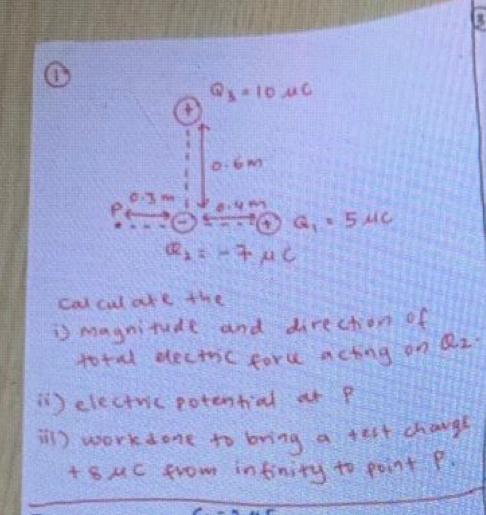 1
Q3 = 10 μC
+
0.6m
0.3m
0.4m
P
-
+
Q1 = 5 μC
Q2 = -7 μC
calculate the
i) magnitude and direction of
total electric force acting on Q2.
ii) electric potential at P
iii) workdone to bring a test charge
+8 μC from infinity to point P.